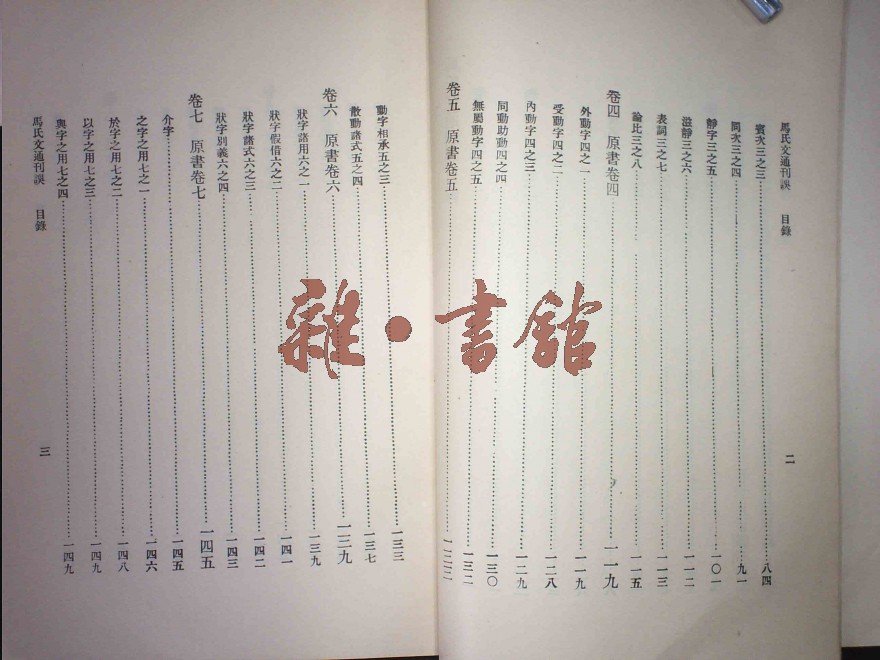 馬氏文通刊誤 目錄 二
賓次三之三……八四
同次三之四……九一
靜字三之五……一〇一
滋靜三之六……一一二
表詞三之七……一一三
論比三之八……一一五
卷四 原書卷四……一一九
外動字四之一……一一九
受動字四之二……一二八
內動字四之三……一二九
同動助動四之四……一三〇
無屬動字四之五……一三二
卷五 原書卷五……
動字相承五之三……一三三
散動諸式五之四……一三七
卷六 原書卷六……一三九
狀字諸用六之一……一三九
狀字假借六之二……一四一
狀字諸式六之三……一四二
狀字別義六之四……一四三
卷七 原書卷七……一四五
介字……一四五
之字之用七之一……一四六
於字之用七之二……一四八
以字之用七之三……一四九
與字之用七之四……一四九
馬氏文通刊誤 目錄 三
雜·書館